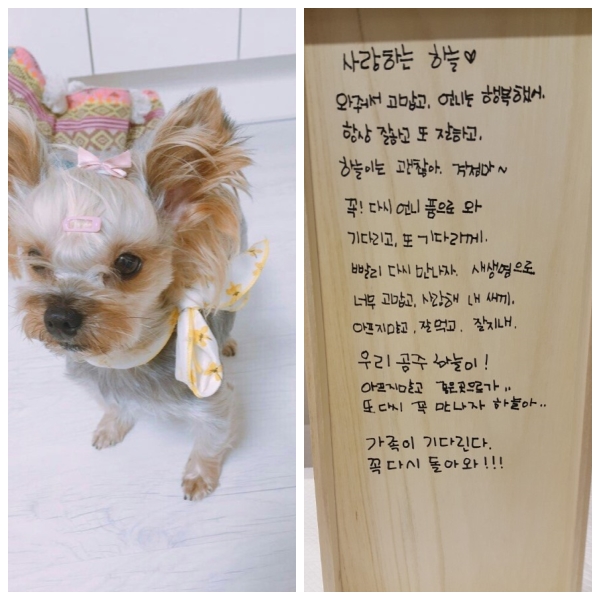 사랑하는 하늘♡
와줘서 고맙고, 언니는 행복했어.
항상 잘했고 또 잘하고,
하늘이는 괜찮아. 걱정마~
꼭! 다시 언니 품으로 와
기다리고, 또 기다릴게.
빨리 다시 만나자. 새생명으로
너무 고맙고, 사랑해 내 새끼,
아프지말고, 잘먹고, 잘지내.
우리 공주 하늘이!
아프지말고 좋은곳으로가..
또 다시 꼭 만나자 하늘아..
가족이 기다린다.
꼭 다시 돌아와!!!